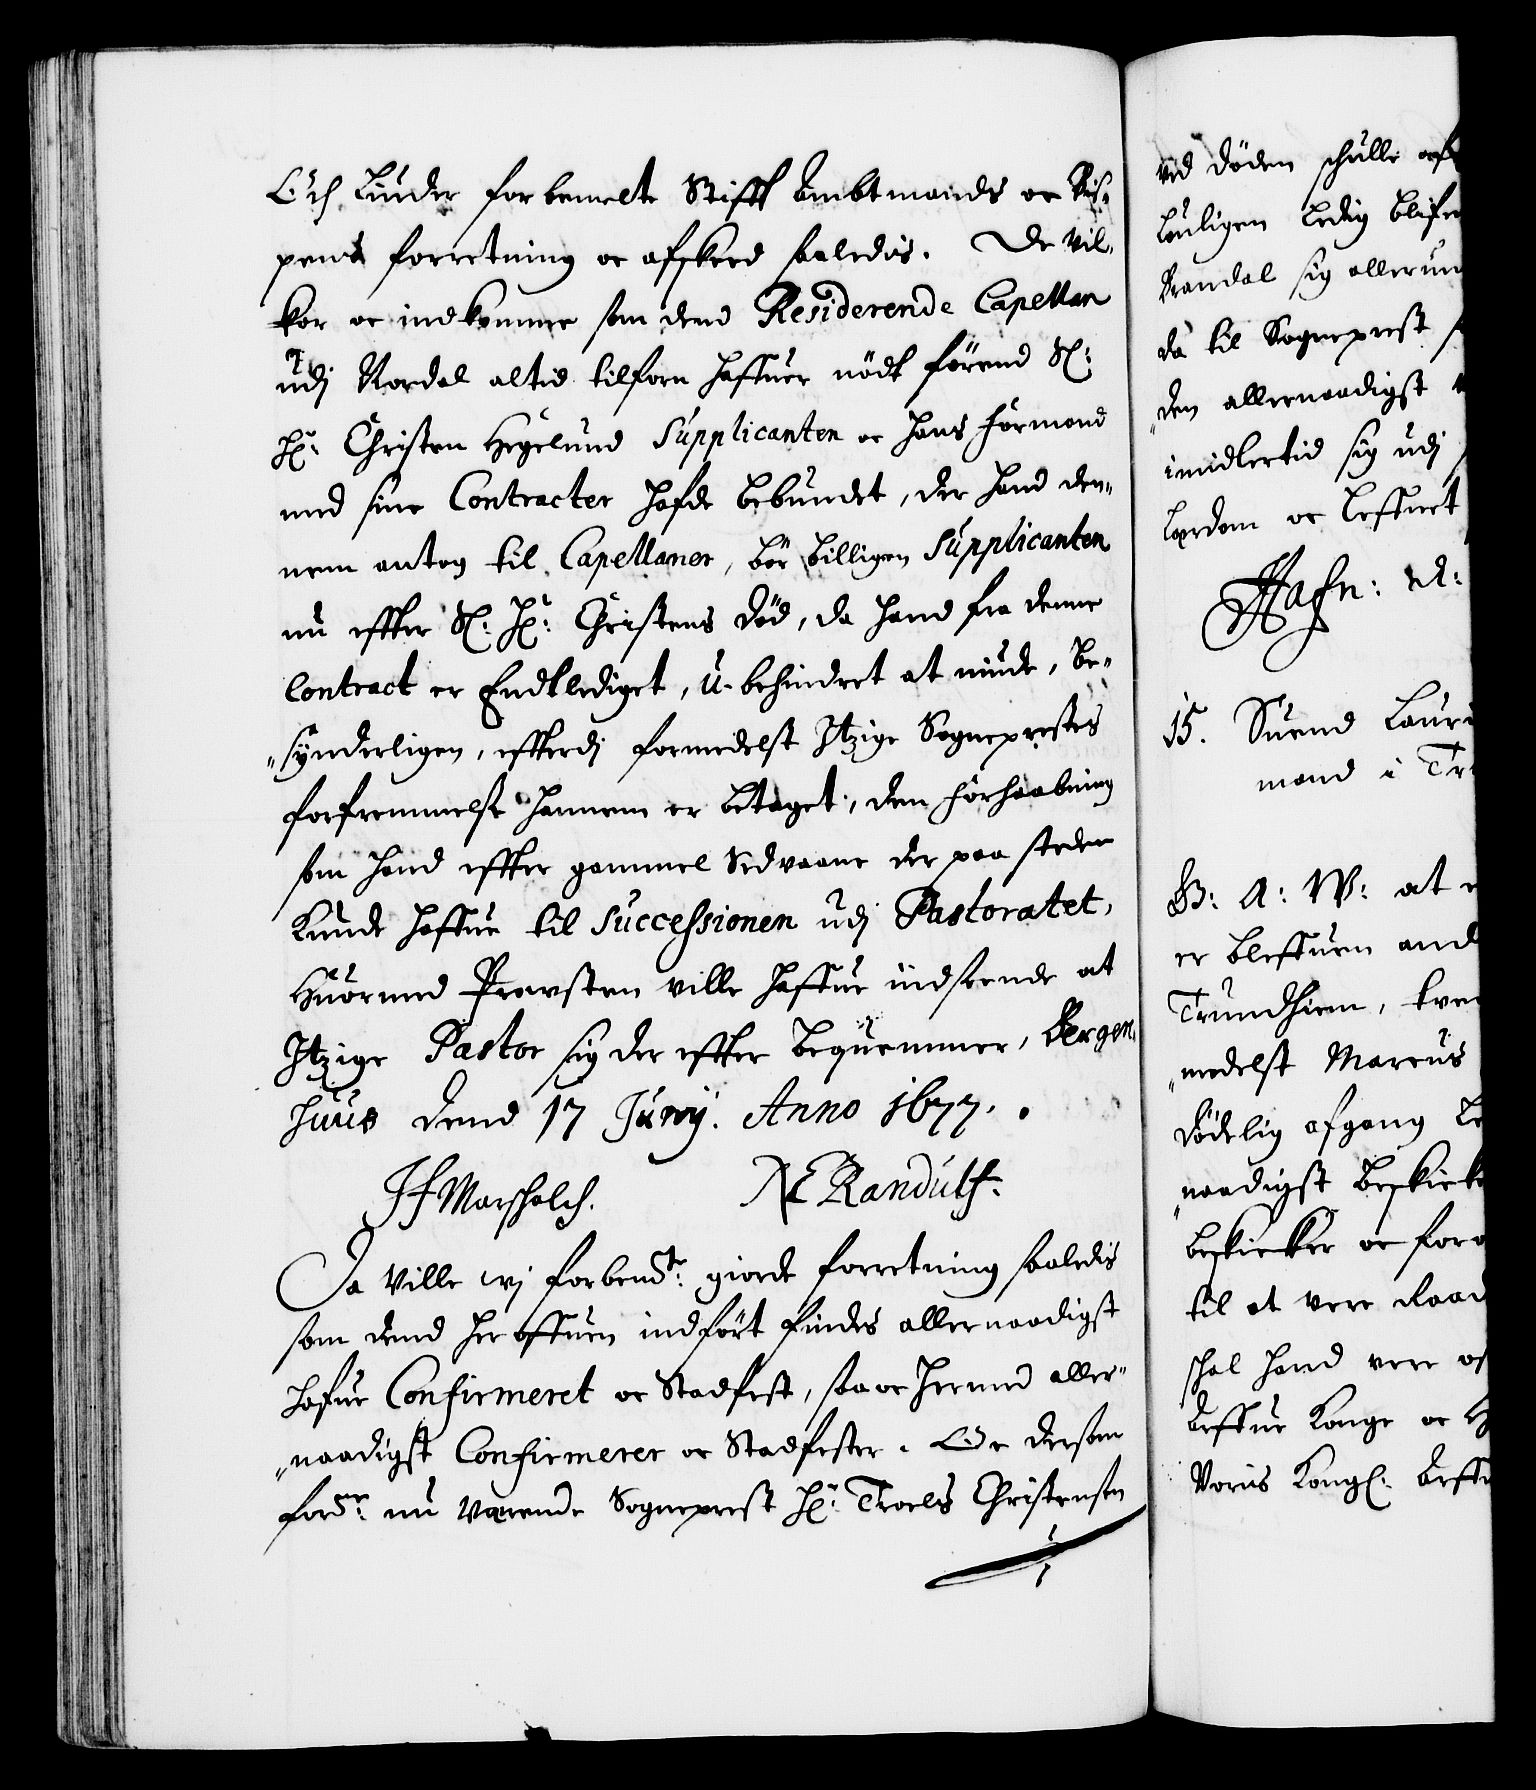 Och Liuder forbemelte Stifft Ambtmands oc Bis-
pens forretning oc afskeed saaledis. De Vil-
kor oc indkomme som dend Residerende Capellan
udj Nordal altid tilforn haffuer nödt förend Sl:
Hr: Christen Hegelund Supplicanten oc hans formand
med sine Contracter hafde bebundet, der hand den-
nem antog til Capellaner, bör billigen Supplicanten
nu effter Sl: Hr: Christens död, da hand fra denne
Contract er Endtlediget, u-behindret at niude, be-
synderligen, efftterdj formedelst Itzige Sogneprestes
forfremmelse hannem er betaget, den forhaabning
som hand effter gammel Sedvaane der paa steden
Kunde haffue til Successionen udj Pastoratet,
Huormed Prowsten ville haffue indseende at
Itzige Pastor sig der effter bequemmer, Bergen-
huus dend 17 Junij. Anno 1677.
JF Marschalch. NE Randulf.
Da Ville wj forbendte: giorde forretning saaledis
som dend her offuen indfört findes allernaadigst
hafue Confirmeret oc Stadfest, saa oc hermed aller-
naadigst Confirmerer oc Stadfester. Oc dersom
fordne: nu Værende Sogneprest Hr: Troels Christensen
ved döden schulle
louligen ledig
sig
da til Sogneprest
den allernaadigst
imidlertid sig udj
lærdom oc leffnet
Hafn: d:
15. Suend
mand i
G: A: W: at
er bleffuen
Trundhiem,
medelst Marcus
dödelig afgang
naadigst
beskicker oc
til at vere
schal hand vere
Arffue Konge oc
Voris Kongl: